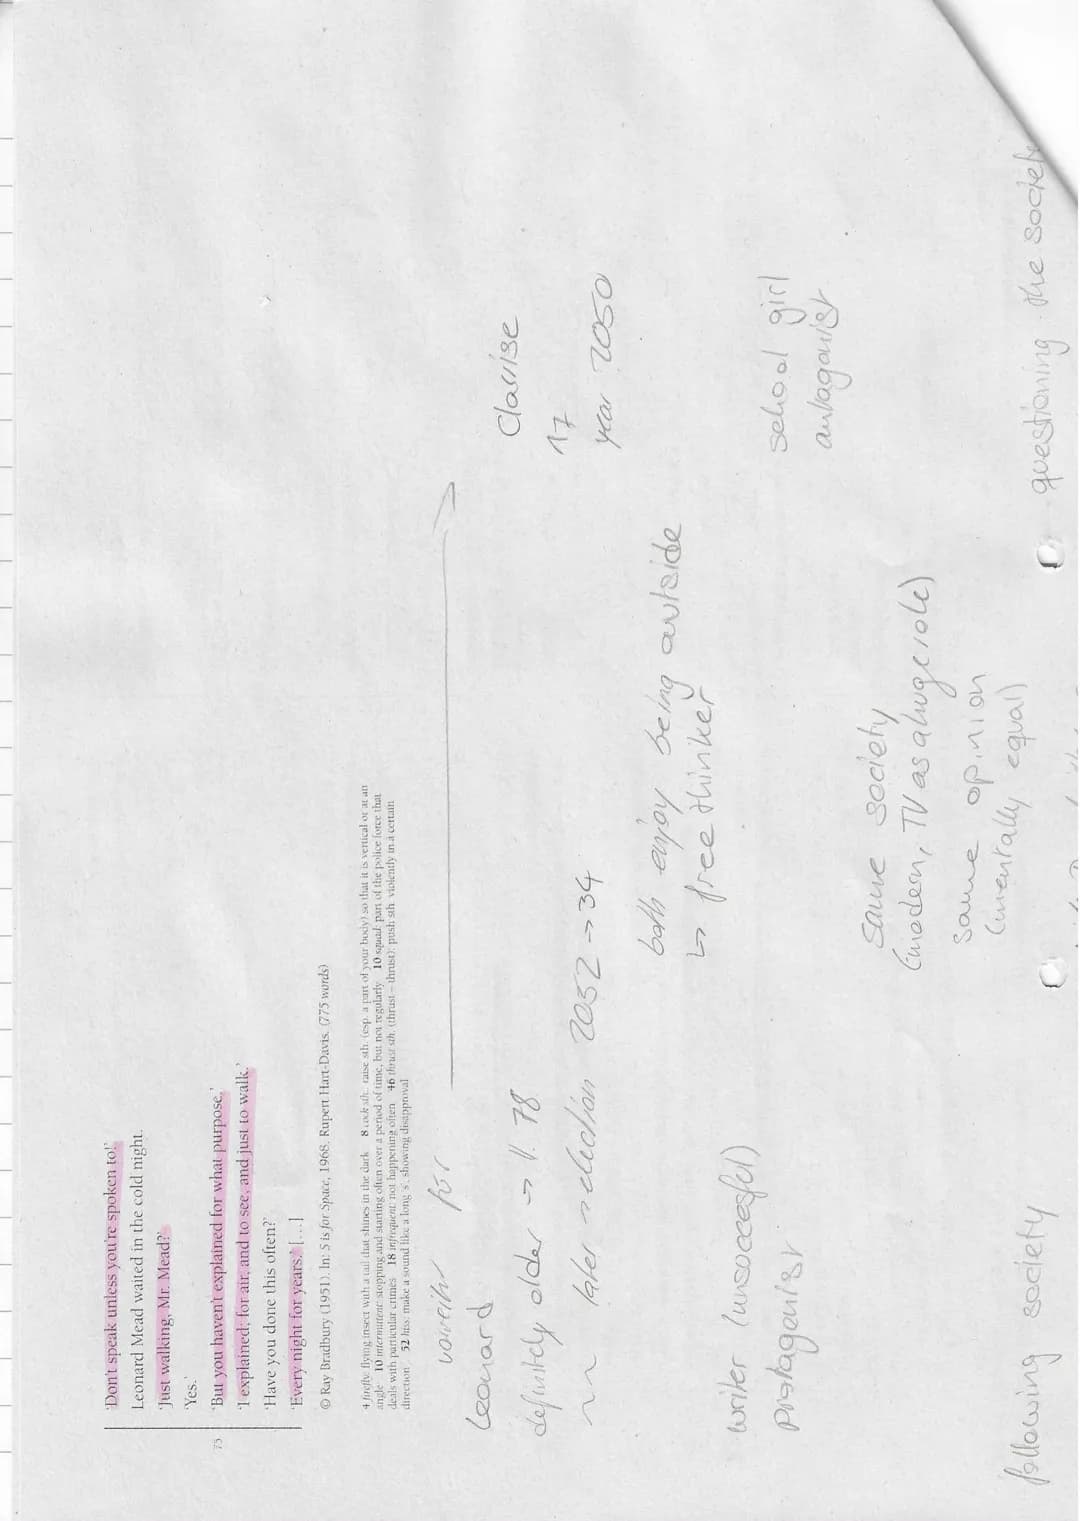 'Don't speak unless you're spoken to!'
Leonard Mead waited in the cold night.
'Just walking, Mr. Mead?'
'Yes.'
75 'But you haven't explained for what purpose.'
'I explained; for air, and to see, and just to walk.'
'Have you done this often?'
'Every night for years.' [...]
© Ray Bradbury (1951). In: S is for Space, 1968. Rupert Hart-Davis. (775 words)
4 firefly: flying insect with a tail that shines in the dark 8 cock sth.: raise sth. (esp. a part of your body) so that it is vertical or at an
angle 10 intermittent: stopping and starting often over a period of time, but not regularly 10 squad: part of the police force that
deals with particular crimes 18 infrequent: not happening often 46 thrust sth. (thrust – thrust): push sth. violently in a certain
direction 52 hiss: make a sound like a long 's', showing disapproval
für
Leonard Clarisse
definitely older -> l. 78 17
later reelection 2052 -> 34 year 2050
both enjoy being outside
↳ free thinker
writer (unsuccesful) school girl
protagonist antagonist
same society
(modern, TV as a huge role)
same opinion
(mentally equal)
following society questioning the society